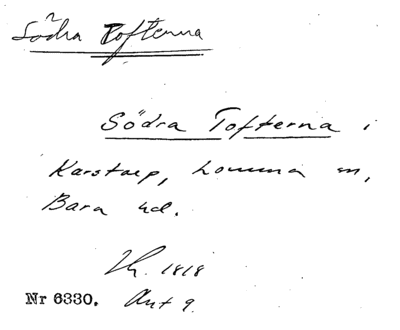 Södra Toftenna
Södra Tofterna i
Karstorp, Lomma sn,
Bara hd.
Lh. 1818
Nr 6330. Akt 9.